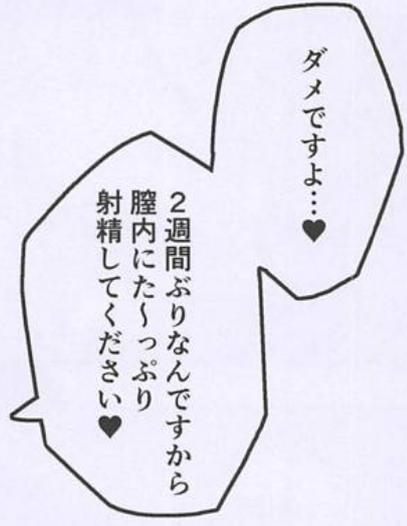 ダメですよ…♥
2週間ぶりなんですから
膣内にた～っぷり
射精してください♥